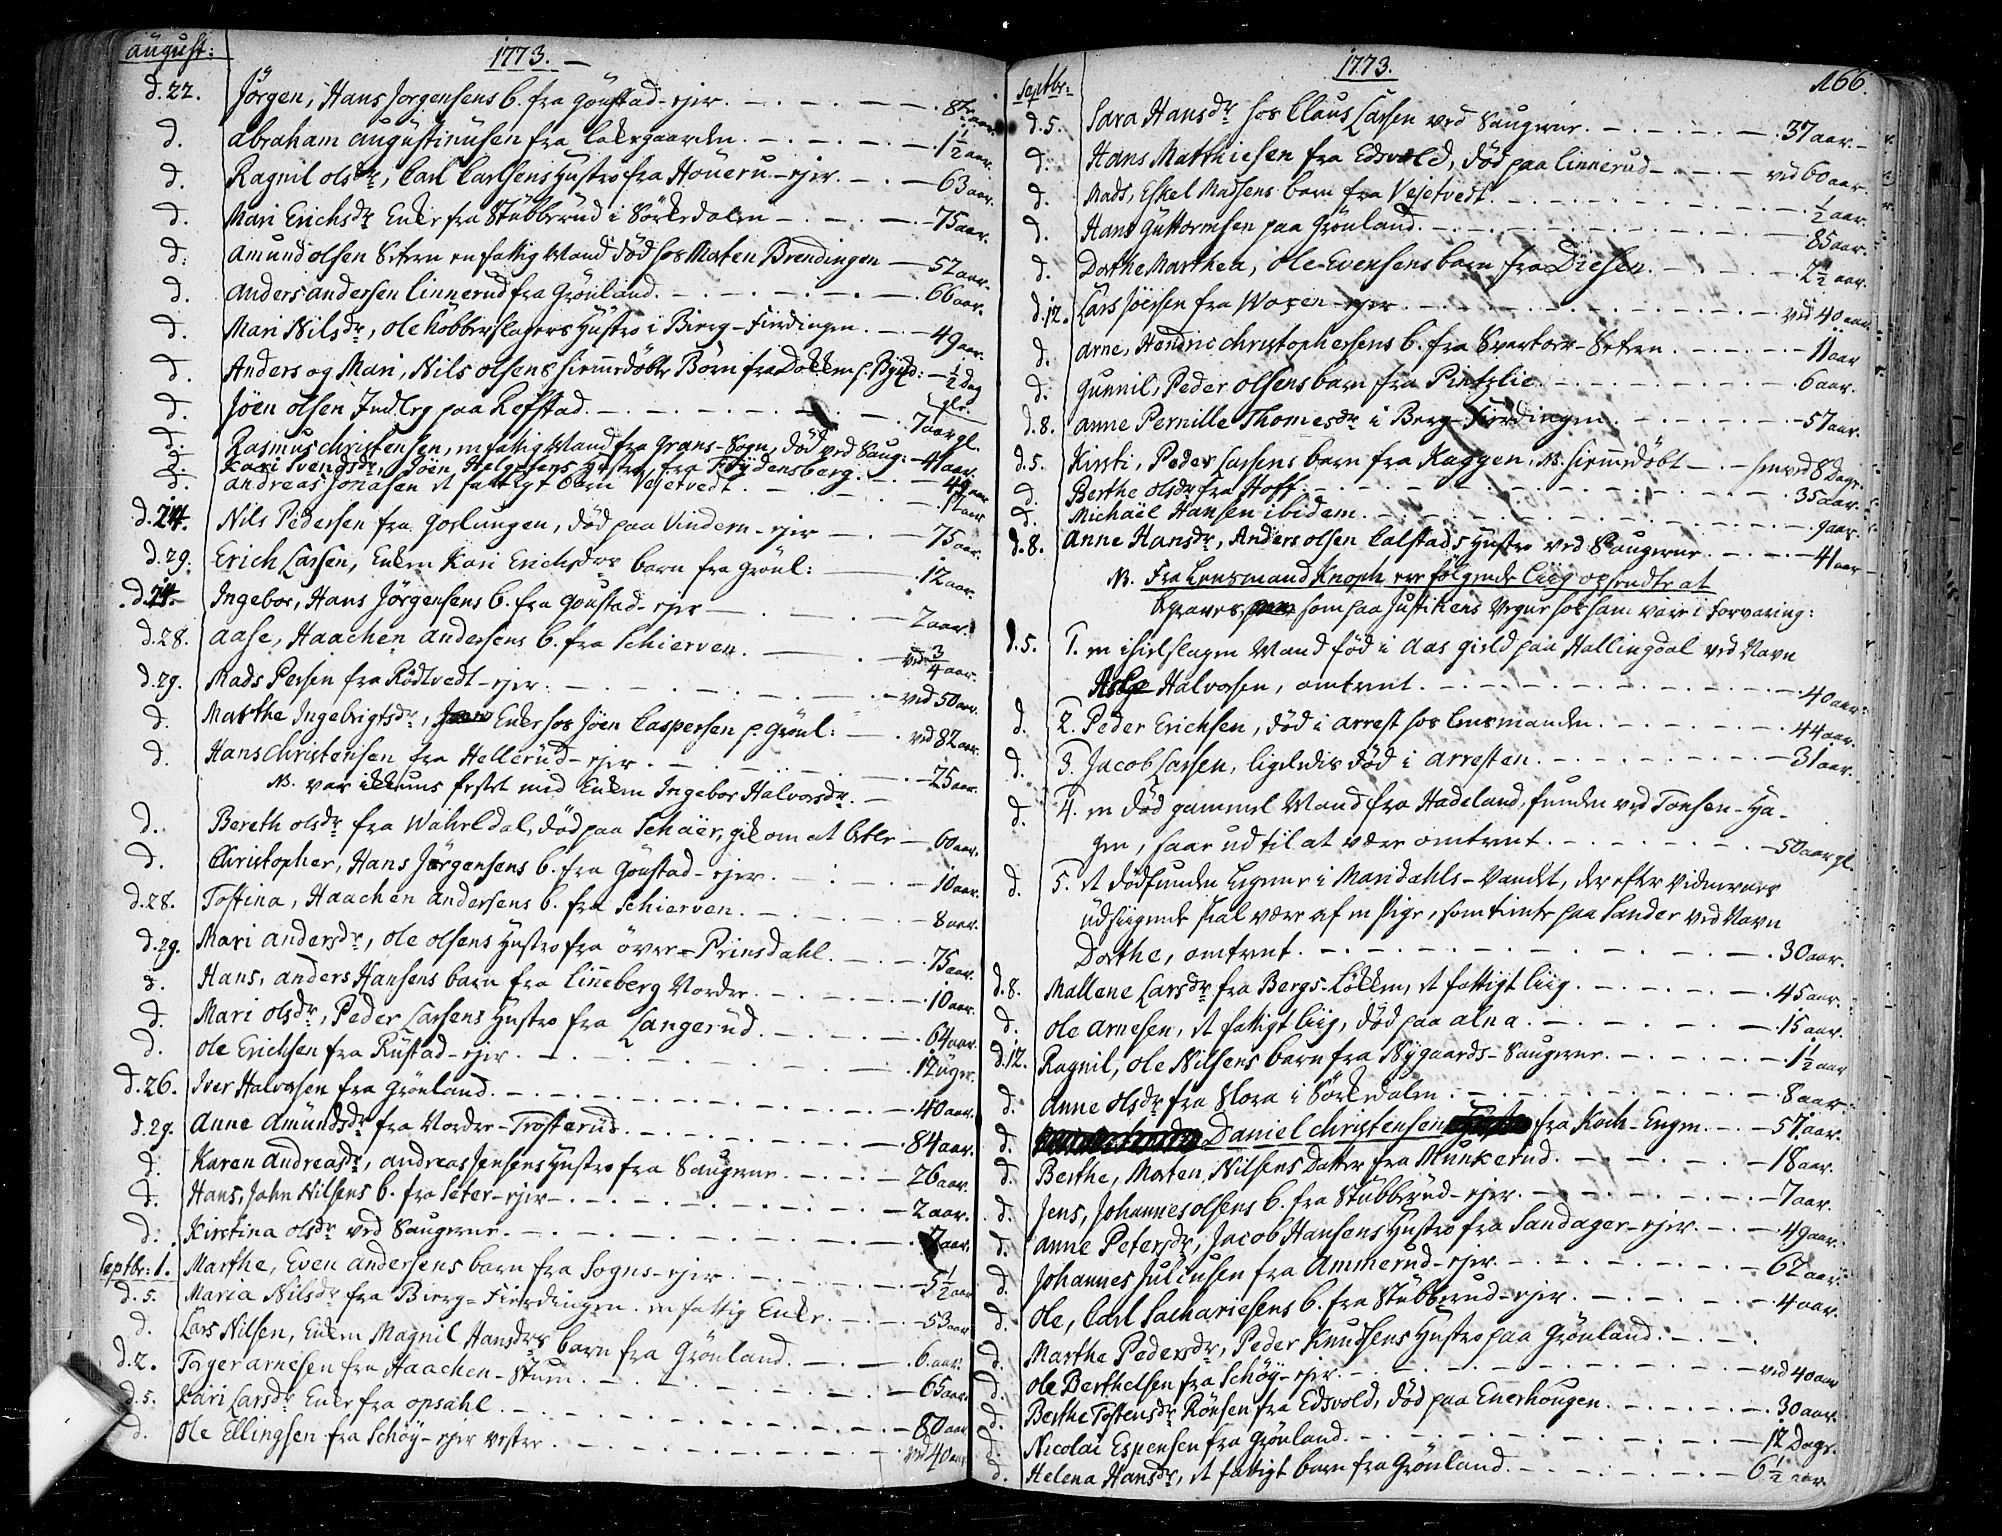 august:
1773.
d. 22. Jörgen, Hans Jorgensens b. fra Goustad-ejer. 8 aar.
d. Abraham Augustinusen fra Lakegaarden 1½ aar.
d. Ragnil olsdr, Carl Carlsens Hustro fra Höueru-ejer. 63 aar.
d. Mari Erichsdr Enke fra Stubberud i Sörkedalen 75 aar.
d. Amund olsen Setren en fattig Mand död hos Morten Brendingen 52 aar.
d. Anders andersen Linnerud fra Grönland. 66 aar.
d. Mari Nilsdr, ole Kobberslagers Hustro i Bierg-Fierdingen. 49 aar.
d. Anders og Mari, Nils olsens hiemedöbte Börn fra Dokken p. Bygd: ½ Dag gle.
d. Jöen olsen Indleg paa Refstad. 7 aar gl.
d. Rasmus christensen, en fattig Mand fra Grans-Sogn, död ved Saug: 41 aar.
d. Kari Svendsdr, Joen Helgesens Hustro, fra Frydensberg. 49 aar
d. andreas Jonasen et fattigt barn Vejetvedt. 11 aar
d. 24. Nils Pedersen fra Goslungen, död paa Vindern-ejer 75 aar.
d. 29. Erich Larsen, Enken Kari Erichsdrs barn fra Grönl: 12 aar.
d. 24. Ingebor, Hans Jörgensens b. fra Goustad-ejer 2 aar.
d. 28. Aase, Haachen andersens b. fra Schierven. ved ¾ aar.
d. 29. Mads Persen fra Rödtvedt-ejer. ved 50 aar.
d. Marthe Ingebrigtsdr, Enke hos Jöen Caspersen p. Grönl: ved 82 aar.
d. Hans Christensen fra Hellerud-ejer. 25 aar.
NB. var ikkuns festet med Enken Ingebor Halvorsdr.
d. Bereth olsdr fra Wahrldal, död paa Schäier, gik om at betle 60 aar.
d. Christopher, Hans Jörgensens b. fra Goustad-ejer. 10 aar.
d. 28. Tostina, Haachen andersens b. fra Schierven. 8 aar.
d. 29. Mari andersdr, ole olsens Hustro fra över-Prinsdahl. 75 aar.
d. Hans, anders Hansens barn fra Linneberg Nordre. 10 aar.
d. Mari olsdr, Peder Larsens Hustro fra Langerud. 64 aar.
d. Ole Erichsen fra Rustad-ejer. 12 uger.
d. 26. Iver Halvorsen fra Grönland. 40 aar.
d. 29. Anne Amundsdr fra Nordre-Trosterud. 84 aar.
d. Karen Andreasdr, andreas Jensens Hustro fra Saugerne. 26 aar.
d. Hans, John Nilsens b. fra Seter-ejer. 2 aar.
d. Kirstina olsdr ved Saugerne. 7 aar.
Septbr: 1. Marthe, Even andersens barn fra Sogns-ejer 5½ aar
d. 5. Maria Nilsdr fra Bierg-Fierdingen. en fattig Enke. 53 aar
d. Lars Nilsen, Enken Magnil Hansdrs barn fra Grönland. 6 aar.
d. 2. Torger arnesen fra Haachen-Stuen. 65 aar.
d. 5. Kari Larsdr Enke fra opsahl. 80 aar
d. Ole Ellingsen fra Schöy-ejer vestre. ved 40 aar
Septbr:
1773.
166.
d. 5. Sara Hansdr hos Claus Larsen ved Saugerne. 37 aar.
d. Hans Matthiesen fra Edsvold, död paa Linnerud ved 60 aar.
d. Mads, Eskel Madsens barn fra Vejetvedt. ½ aar.
d. Hans Guttormsen paa Grönland. 85 aar.
d. Dorthe Marthea, ole Evensens barn fra Diesen. 2½ aar.
d. 12. Lars Jöersen fra Woxen-ejer ved 40 aar
d. Arne, Hendric christophersens b. fra Svartorr-Setren. 11 aar
d. Gunnil, Peder olsens barn fra Pintzlie. 6 aar.
d. 8. Anne Pernille Thomesdr i Berg-Fierdingen. 57 aar.
d. 5. Kirsti, Peder Larsens barn fra Kaggen. NB. hiemedöbt henved 8 Dage.
d. Berthe olsdr fra Hoff. 35 aar.
d. Michäel Hansen ibidem. 9 aar.
d. 8. Anne Hansdr, Anders olsen Calstads Hustro ved Saugerne. 41 aar
NB. Fra Lensmand Knoph ere fölgende Liig opsendte at
begraves, som paa Justitiens vegne hos ham vare i forvaring:
d. 5. 1. en ihielslagen Mand föd i Aas gield paa Hallingdal ved Navn
Aslge Halvorsen, omtrent. 40 aar.
d. 2. Peder Erichsen, död i arrest hos Lensmanden. 44 aar.
d. 3. Jacob Larsen, ligeledes död i arresten. 31 aar.
d. 4. en död gammel Mand fra Hadeland, funden ved Tonsen-Ha-
gen, saae ud til at være omtrent. 50 aar gl.
d. 5. et dödfunden Legeme i Maridahls-Vandet, der efter vidnernes
udsigende skal være af en Pige, som tiente paa Sander ved Navn
Dorthe, omtrent. 30 aar.
d. 8. Mallene Larsdr fra Bergs-Lökken, et fattigt liig 45 aar.
d. Ole Arnesen, et fattigt liig, död paa alna. 15 aar.
d. 12. Ragnil, Ole Nilsens barn fra Nygaards-Saugerne. 1½ aar
d. Anne olsdr fra Flora i Sörkedalen. 8 aar.
d. Daniel christensen fra Koch-Engen 57 aar.
d. Berthe, Morten Nilsens Datter fra Munkerud. 18 aar.
d. Jens, Johannes olsens b. fra Stubberud-ejer. 7 aar.
d. Anne Petersdr, Jacob Hansens Hustro fra Sandager-ejer. 49 aar.
d. Johannes Juliusen fra Ammerud-ejer. 62 aar.
d. Ole, Carl Sachariesens b. fra Stubberud-ejer. 4 aar.
d. Marthe Pedersdr, Peder Knudsens Hustro paa Grönland.
d. Ole Berthelsen fra Schöy-ejer. ved 40 aar
d. Berthe Tostensdr Rönsen fra Edsvold, död paa Enerhougen. 30 aar.
d. Nicolai Espensen fra Grönland. 12 Dage.
d. Helena Hansdr, et fattigt barn fra Grönland. 6½ aar.